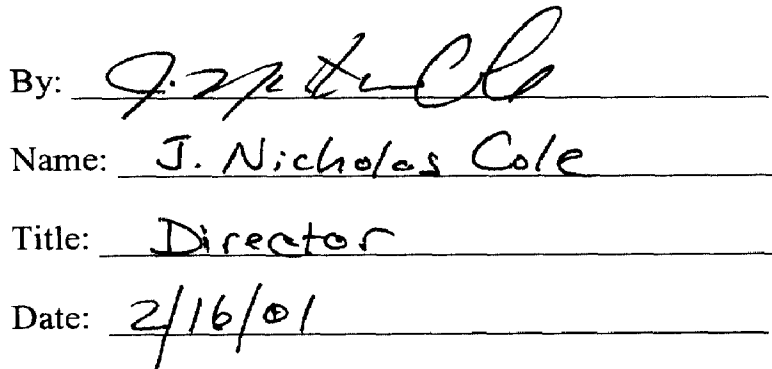 By:
Name: J. Nicholas Cole
Title: Director
Date: 2/16/01